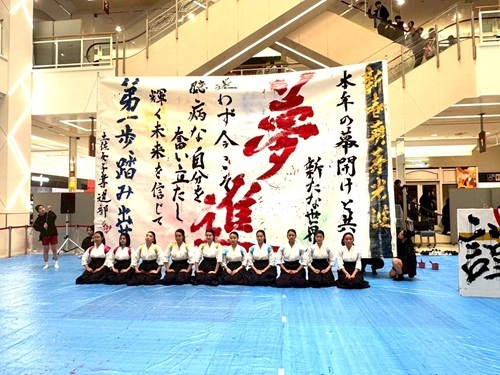 新春
本年の幕開けと共
新たな世界
夢
進
迷わず今こそ
臆病な自分を
奮い立たし
輝く未来を信じて
第一歩踏み出せ
土佐女子書道部